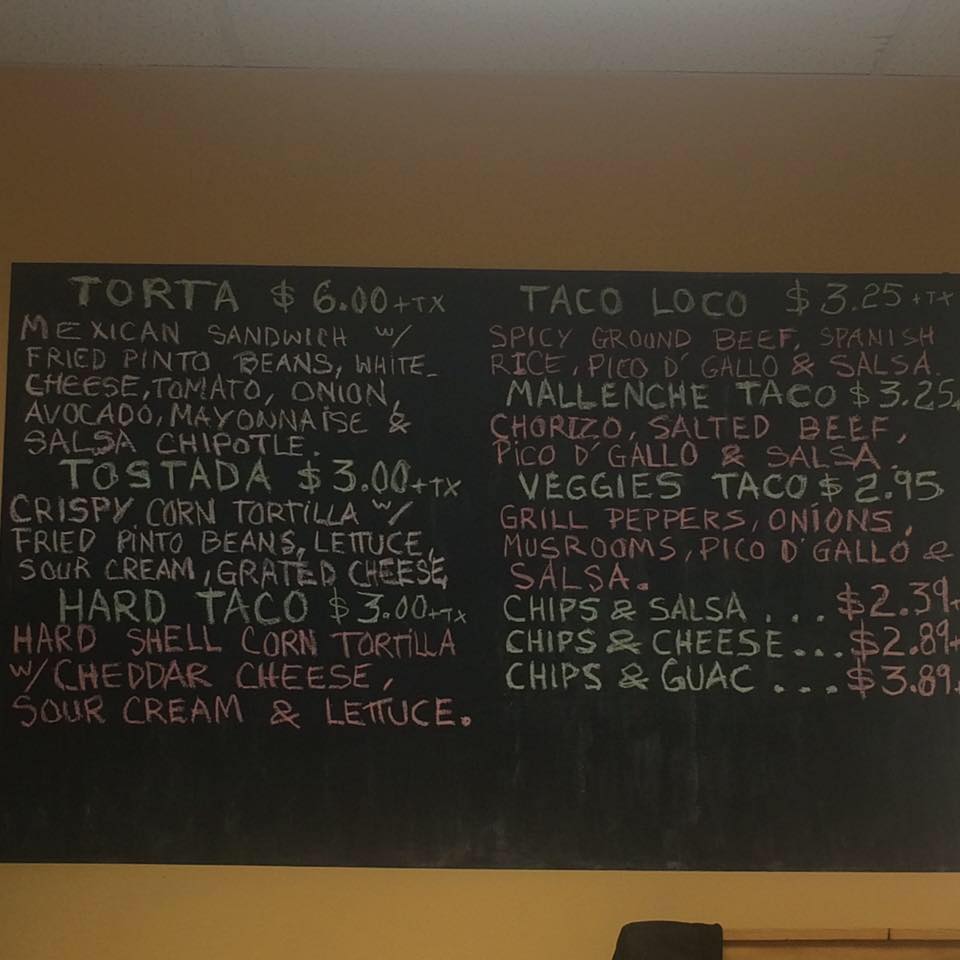 TORTA $6.00+TX
MEXICAN SANDWICH W/
FRIED PINTO BEANS, WHITE
CHEESE, TOMATO, ONION,
AVOCADO, MAYONNAISE &
SALSA CHIPOTLE.
TOSTADA $3.00+TX
CRISPY CORN TORTILLA W/
FRIED PINTO BEANS, LETTUCE,
SOUR CREAM, GRATED CHEESE,
HARD TACO $3.00+TX
HARD SHELL CORN TORTILLA
W/CHEDDAR CHEESE,
SOUR CREAM & LETTUCE.
TACO LOCO $3.25+TX
SPICY GROUND BEEF, SPANISH
RICE, PICO D' GALLO & SALSA.
MALLENCHE TACO $3.25
CHORIZO, SALTED BEEF,
PICO D' GALLO & SALSA.
VEGGIES TACO $2.95
GRILL PEPPERS, ONIONS,
MUSROOMS, PICO D' GALLO &
SALSA.
CHIPS & SALSA....$2.39+
CHIPS & CHEESE...$2.89+
CHIPS & GUAC ....$3.89